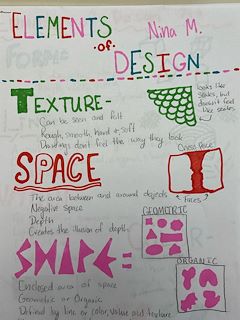 ELEMENTS
Nina M.
of
DESIGN
TEXTURE-
Can be seen and felt
Rough, smooth, hard & soft
Drawings dont feel the way they look
looks like
scales, but
doesn't feel
like scales
SPACE
The area between and around objects
Negative Space
Depth
Creates the illusion of depth
Faces
GEOMETRIC
SHAPE=
ORGANIC
Enclosed area of space
Geometric or Organic
Defined by line or color, value and texture